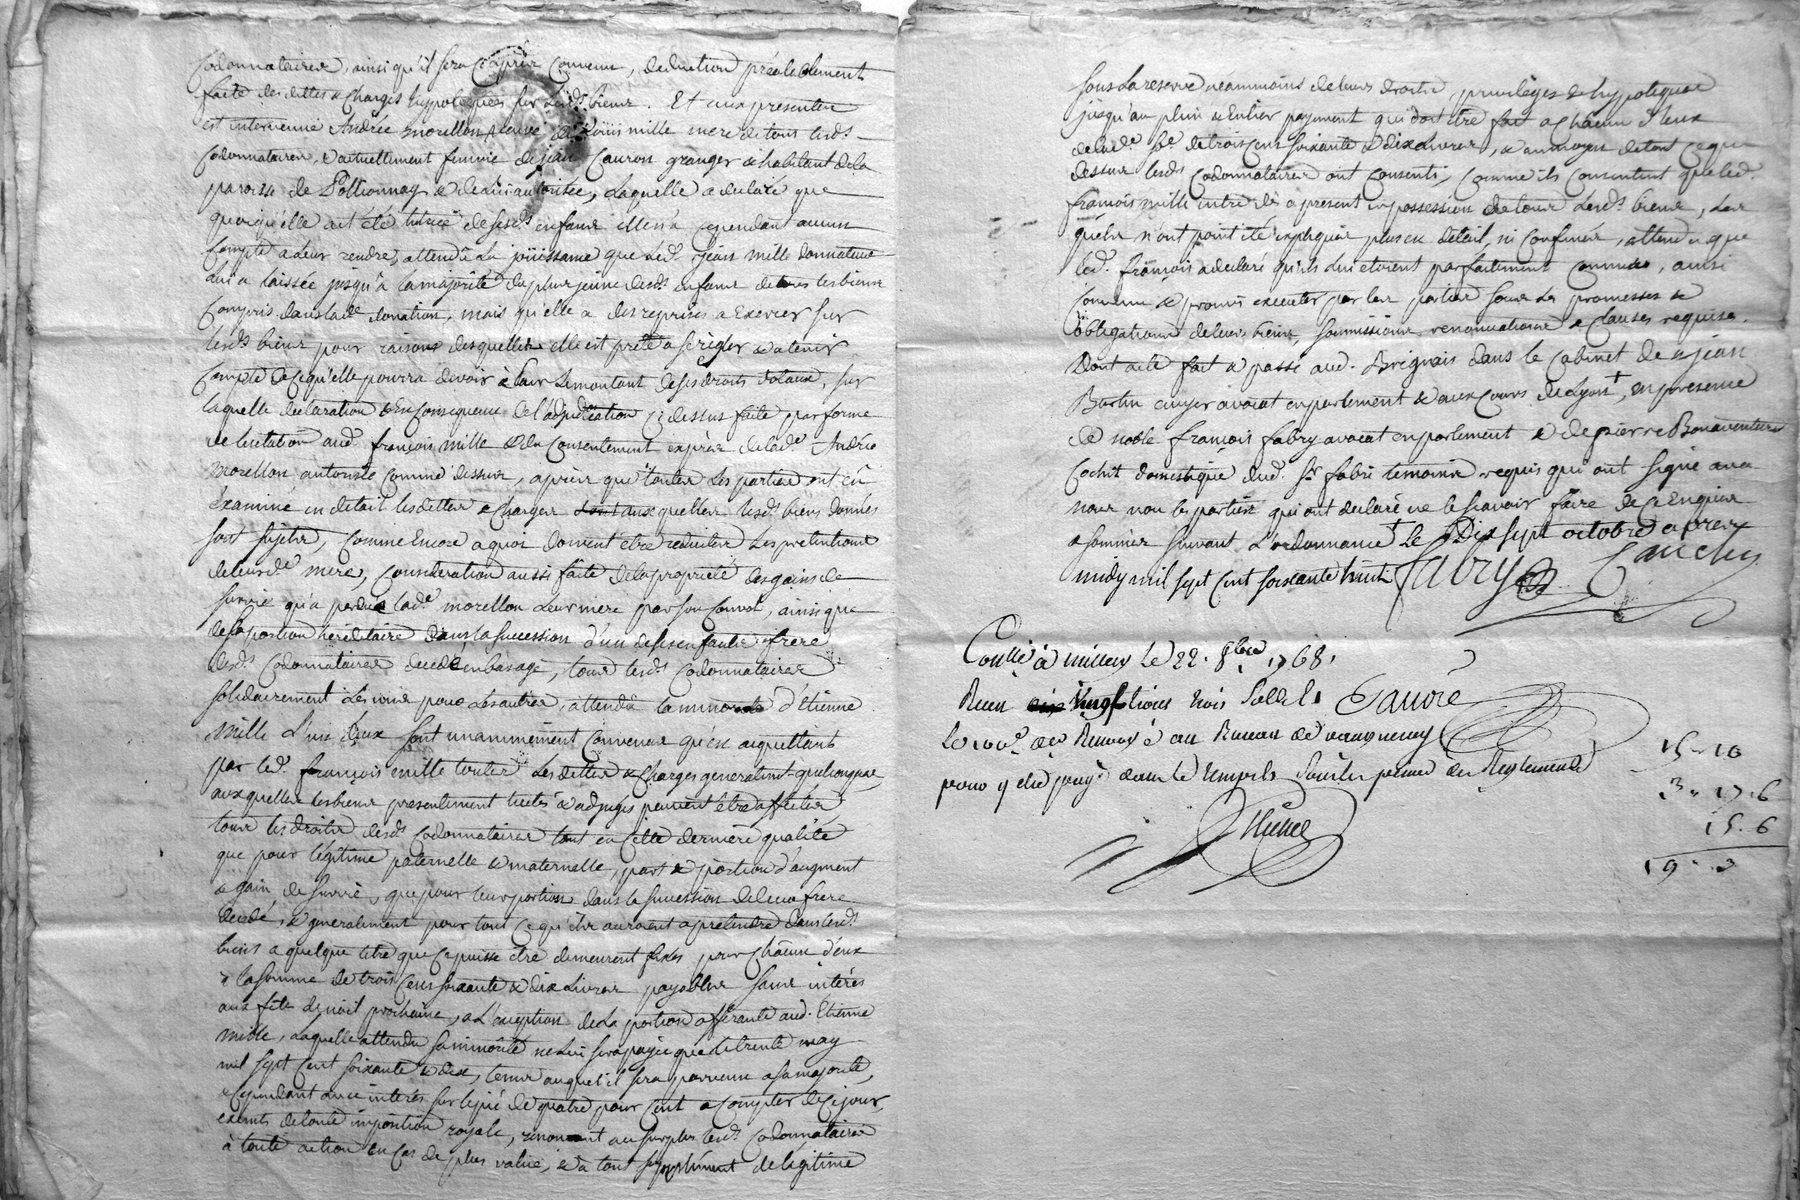 Codonnataires, ainsi qu'il sera cy après convenu, deduction préalablement
faite des dettes & charges hypotequées sur lesds biens. Et aux presentes
est intervenue Andrée morellon veuve de Loüis mille mere de tous lesds
Codonnataires, & actuellement femme de jean Cauron granger & habitant de la
paroisse de Pollionnay & de lui autorisée, laquelle a declaré que
quoiqu'elle ait été tutrice de sesds enfants elle n'a cependant aucun
Compte a leur rendre, attendû la joüissance que led. jean mille donnateur
lui a laissée jusqu'à la majorité du plus jeune desds enfants de tous les biens
Compris dans lade donation, mais qu'elle a des reprises a Exercer sur
lesds biens pour raisons desquelles elle est prete a se regler & a tenir
Compte de ce qu'elle pourra devoir à leur le montant de ses droits dotaux, sur
laquelle declaration & en consequence de l'adjudication cy dessus faite par forme
de licitation aud. françois mille & du consentement exprès de lade Andrée
Morellon autorisée comme dessus, après que toutes les parties ont eû
Examiné en détail les dettes & charges auxquelles lesds biens donnés
sont sujets, comme Encore a quoi doivent etre reduites les pretentions
de leurde mere, consideration aussi faite de la proprieté des gains de
survie qu'a perdüe lade morellon leur mere par son convol, ainsi que
de sa portion héréditaire dans la succession d'un de ses enfants frere
desds Codonnataires decedé en bas age, tous lesds Codonnataires
solidairement les uns pour les autres, attendû la minorité d'Etienne
Mille l'un d'eux sont unanimement convenus qu'en acquittant
par led. françois mille toutes les dettes & charges generalement quelconques,
auxquelles les biens presentement licités & adjugés peuvent être affectés
tous les droits desds Codonnataires tant en cette derniere qualité
que pour légitime paternelle & maternelle, part & portion d'augment
& gain de survie, que pour leur portion dans la succession de leur frere
decedé, & generalement pour tout ce qu'ils auroient a pretendre dans lesds
biens a quelque titre que ce puisse etre demeurent fixés pour chacun d'eux
a la somme de trois Cens soixante & dix Livres payables sans intérés
aux fêtes de noël prochaine, a L'exception de la portion afférante aud. Etienne
Mille, laquelle attendu sa minorité ne lui sera payée que le trente may
mil sept Cent soixante & dix, tems auquel il sera parvenu a sa majorité,
Cependant avec intérés sur le pié de quatre pour Cent a compter de ce jour,
exemts de toute imposition royale, renonçant au surplus lesds Codonnataires
à toute action en cas de plus value, & à tout supplément de légitime
sous la reserve néammoins de leurs droits, privilèges & hypoteques
jusqu'au plein & Entier payement qui doit être fait a chacun d'eux
de lade se de trois Cens soixante & dix Livres, & au moyen de tout ce que
dessus lesds Codonnataires ont consenti, comme ils consentent que led.
françois mille entre dès a present en possession de tous lesds biens, les
quels n'ont point été expliqués plus en détail, ni confinés, attendu que
led. françois a declaré qu'ils lui étoient parfaitement connus, ainsi
convenu & promis executer par les parties sous les promesses &
obligations de leurs biens, soumissions renonciations & clauses requises.
Dont acte fait & passé aud. Brignais dans le Cabinet de jean
Burtin ecuyer avocat en parlement & aux Cours de Lyon†, en presence
de noble françois fabry avocat en parlement & de pierre Bonaventure
Cochit domestique dud. Sr fabri temoins requis qui ont signé avec
nous non les parties qui ont declaré ne le sçavoir faire de ce Enquises
& sommées suivant L'ordonnance† Le Dix sept octobre apres
midy mil sept cent soixante huit Fabry
Conllé à millery le 22. 8bre 1768.
Recu vingt livres trois sols
Le 100e de Renvoyé au Bureau de vaugneray
pour y être payé dans le temps & sous les peines du Reglement
15 - 10
3 - 17 - 6
15 - 6
19 - - 3